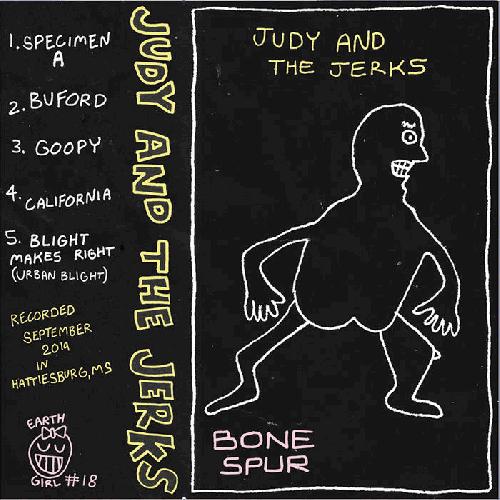 1. SPECIMEN
A
2. BUFORD
3. GOOPY
4. CALIFORNIA
5. BLIGHT
MAKES RIGHT
(URBAN BLIGHT)
RECORDED
SEPTEMBER
2014
IN
HATTIESBURG, MS
EARTH
GIRL #18
JUDY AND THE JERKS
JUDY AND
THE JERKS
BONE
SPUR